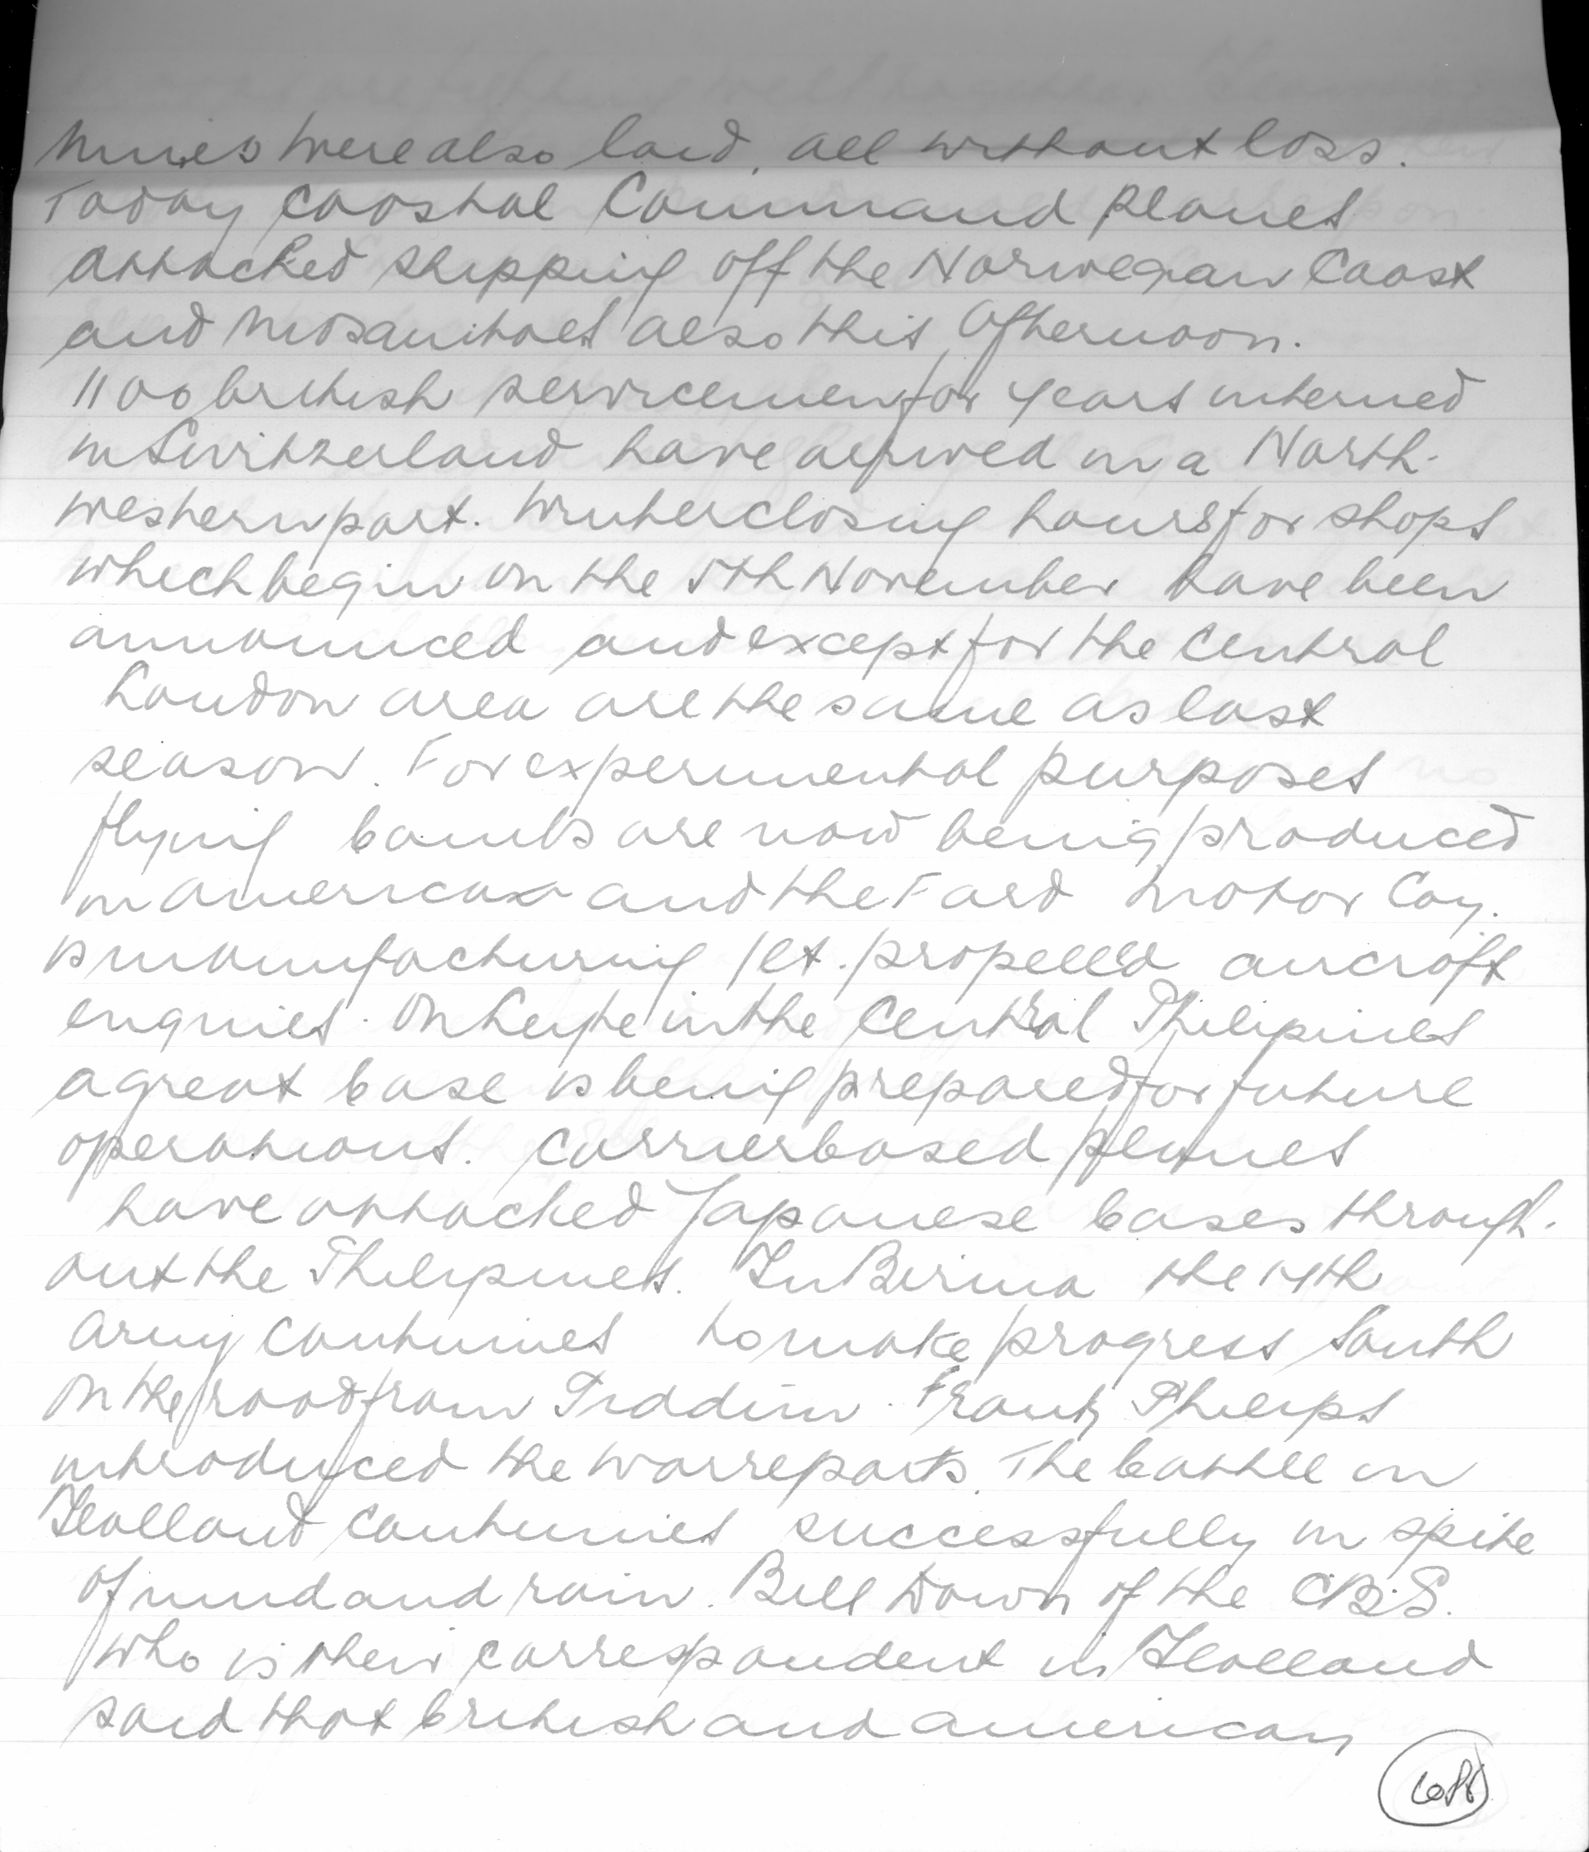 Mines were also laid, all without loss.
Today Coastal Command planes
attacked shipping off the Norwegian Coast
and Mosquitoes also this afternoon.
1100 british servicemen for years interned
in Switzerland have arrived in a North-
western port. Winter closing hours for shops
which begin on the 5th November have been
announced and except for the Central
London area are the same as last
season. For experimental purposes
flying bombs are now being produced
in America and the Ford Motor Coy.
is manufacturing jet-propelled aircraft
engines. On Leyte in the Central Philipines
a great base is being prepared for future
operations. Carrier based planes
have attacked Japanese bases through-
out the Philipines. In Burma the 14th
Army continues to make progress South
on the road from Tiddim. Frank Philips
introduced the war reports. The battle in
Holland continues successfully in spite
of mud and rain. Bill Down of the C.B.S.
who is their correspondent in Holland
said that british and american